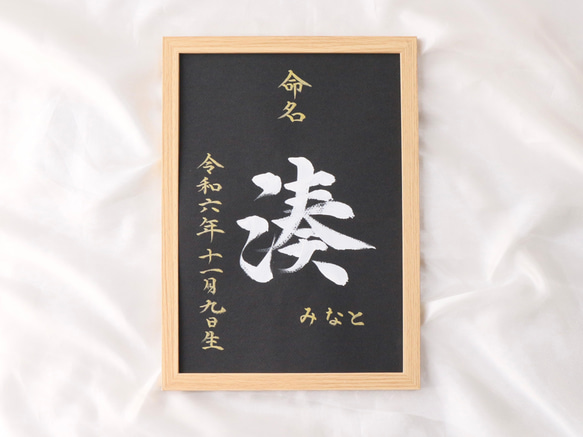 命名
湊
みなと
令和六年十一月九日生